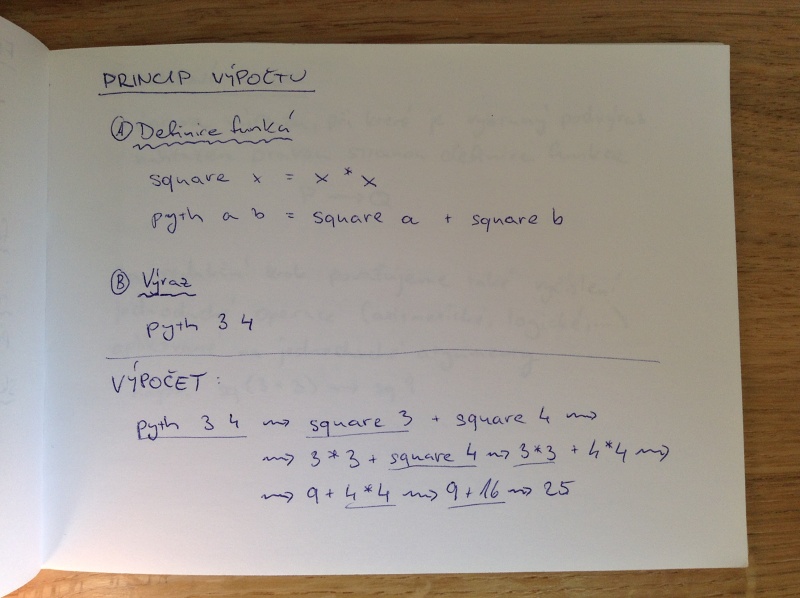 PRINCIP VÝPOČTU
Ⓐ Definice funkcí
square x = x * x
pyth a b = square a + square b
Ⓑ Výraz
pyth 3 4
VÝPOČET:
pyth 3 4 ⇝ square 3 + square 4 ⇝
⇝ 3*3 + square 4 ⇝ 3*3 + 4*4 ⇝
⇝ 9 + 4*4 ⇝ 9+16 ⇝ 25